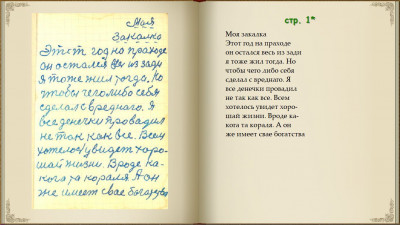 Моя
закалка
Этот год на праходе
он остался весь из зади
я тоже жил тогда. Но
чтобы чего либо себя
сделал с вреднаго. Я
все денечки провадил
не так как все. Всем
хотелось увидет хоро-
шай жизни. Вроде ка-
кога та кораля. А он
же имеет свае богатства
стр. 1*
Моя закалка
Этот год на праходе
он остался весь из зади
я тоже жил тогда. Но
чтобы чего либо себя
сделал с вреднаго. Я
все денечки провадил
не так как все. Всем
хотелось увидет хоро-
шай жизни. Вроде ка-
кога та кораля. А он
же имеет свае богатства